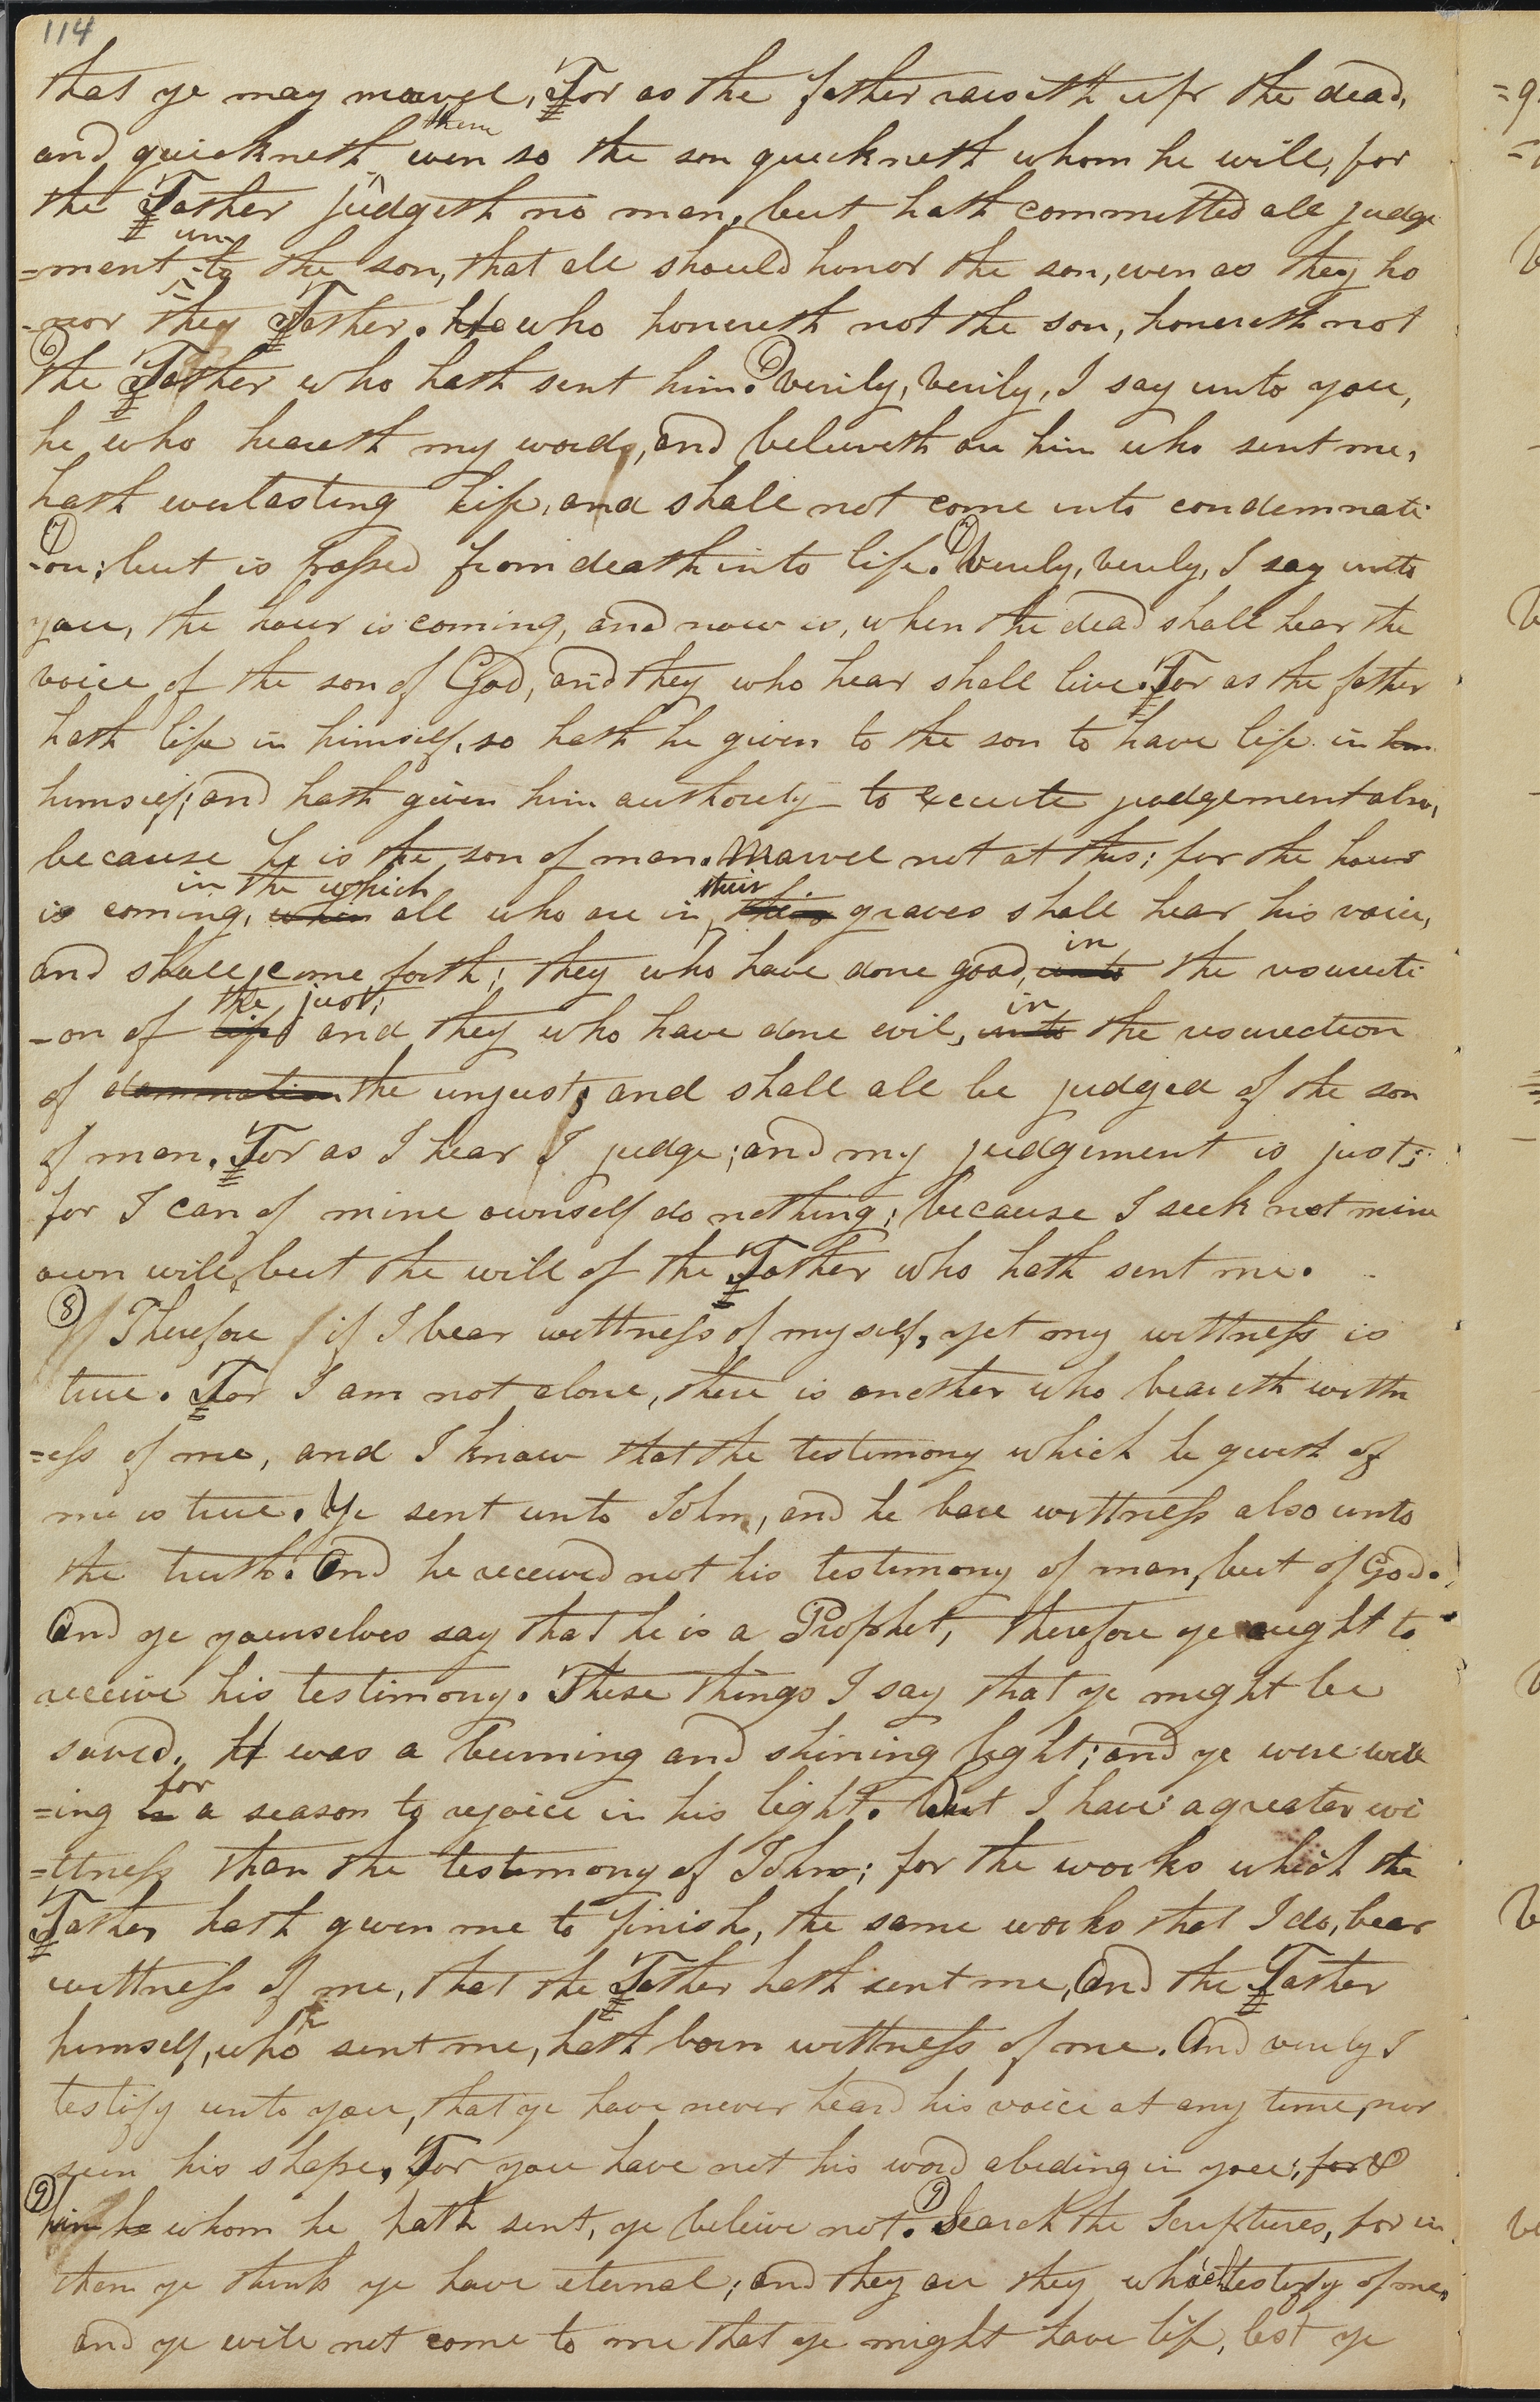 114
that ye may marvel, For as the father raiseth up the dead,
and quickneth them even so the son quickneth whom he will, for
the Father judgeth no man, but hath committed all judge
=ment unto the son, that all should honor the son, even as they ho
-nor they Father. He who honereth not the son, honereth not
(6) the Father who hath sent him. (6) Verily, Verily, I say unto you,
he who heareth my words, and beleiveth on him who sent me,
hath everlasting life, and shall not come into condemnati
(7) -on; but is passed from death into life. (7) Verily, verily, I say unto
you, the hour is coming, and now is, when the dead shall hear the
voice of the son of God, and they who hear shall live. For as the father
hath life in himself, so hath he given to the son to have life in him
himself; and hath given him authority to execute judgement also,
because he is the son of man. Marvel not at this; for the hour
in the which their
is coming, when all who are in graves shall hear his voice,
in
and shall come forth; they who have done good, unto the resurecti
the just; in
-on of life and they who have done evil, unto the resurection
of damnation the unjust; and shall all be judged of the son
of man. For as I hear I judge; and my judgement is just;
for I can of mine ownself do nothing; because I seek not mine
own will, but the will of the Father who hath sent me.
(8) Therefore if I bear wittness of myself, yet my wittness is
true. For I am not alone, there is another who beareth wittn
=ess of me, and I know that the testimony which he giveth of
me is true. Ye sent unto John, and he bare wittness also unto
the truth. And he received not his testimony of man, but of God.
And ye yourselves say that he is a Prophet, therefore ye aught to
receive his testimony. These things I say that ye might be
saved. He was a burning and shining light; and ye were will
for
=ing in a season to rejoice in his light. But I have a greater wi
=ttness than the testimony of John; for the works which the
Father hath given me to finish, the same works that I do, bear
wittness of me, that the Father hath sent me, And the Father
himself, who sent me, hath born wittness of me. And verily I
testify unto you, that ye have never heard his voice at any time, nor
seen his shape, For you have not his word abiding in you; for &
(9) him he whom he hath sent, ye beleive not. (9) Search the Scriptures, for in
them ye think ye have eternal; and they are they which testify of me,
and ye will not come to me that ye might have life, lest ye